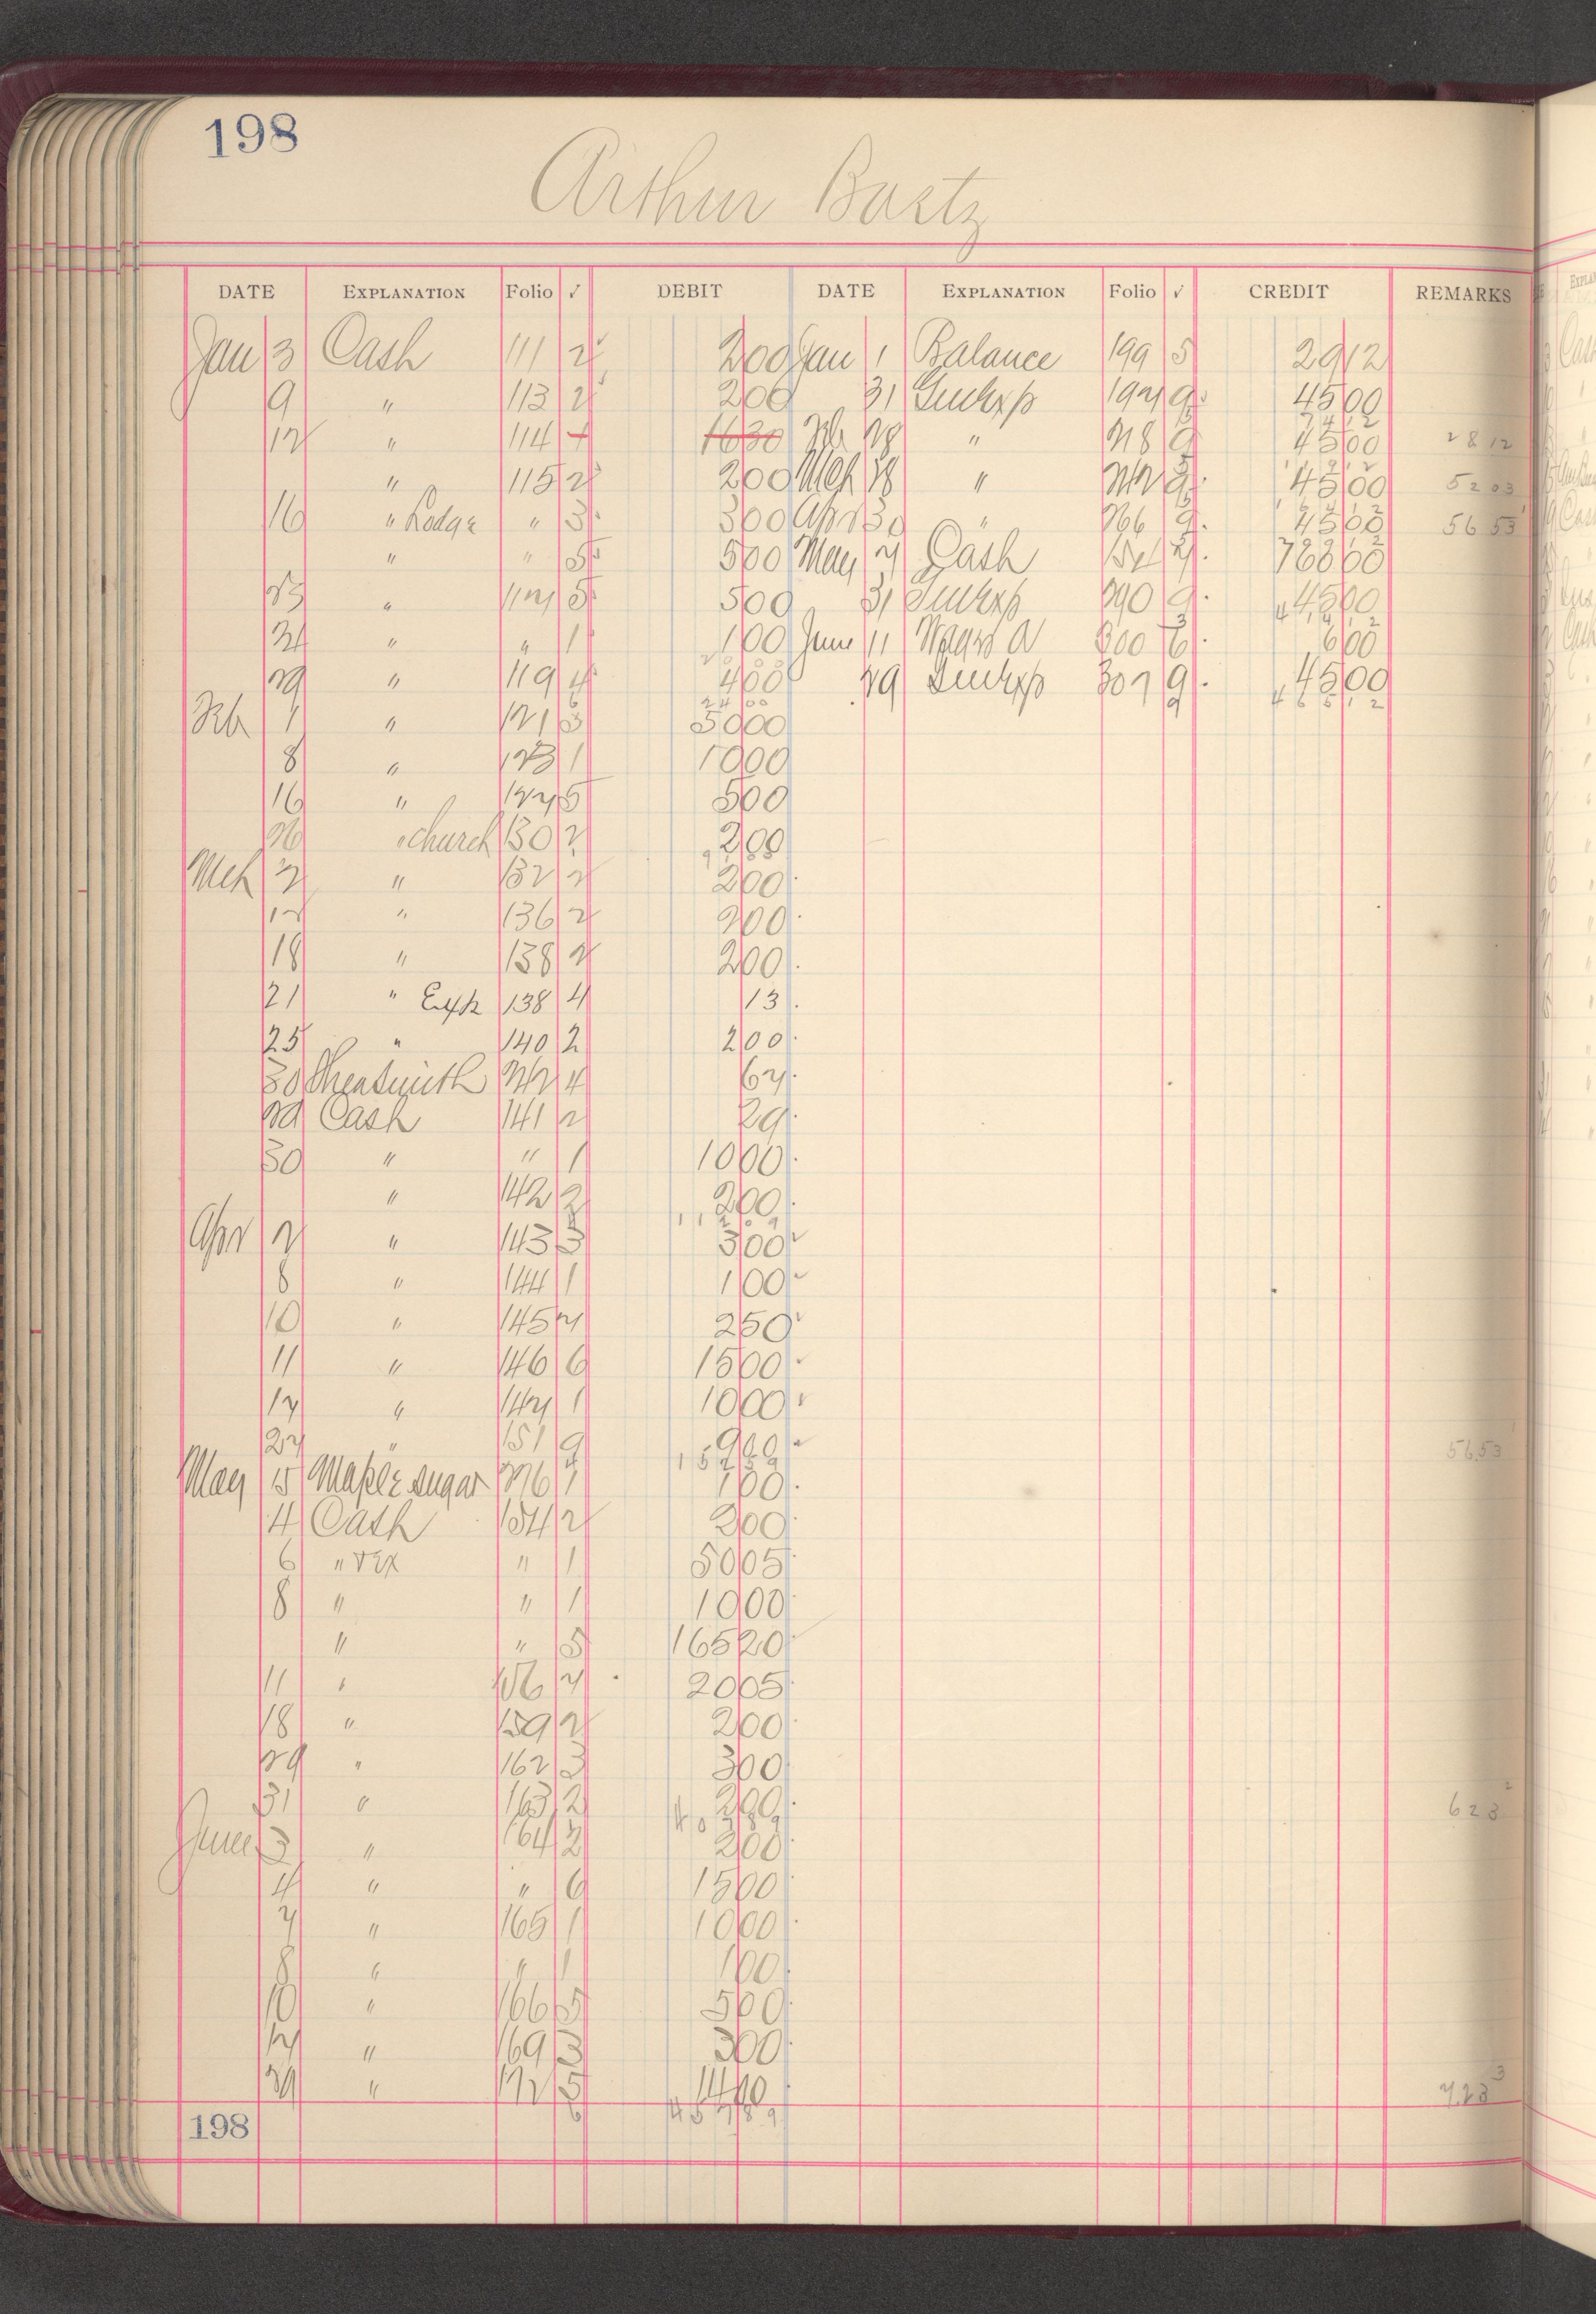 198
Arthur Bartz
DATE EXPLANATION Folio √ DEBIT DATE EXPLANATION Folio √ CREDIT REMARKS
Jan 3 Cash 111 2 200 Jan 1 Balance 199 5 2912
9 " 113 2 200 31 4500
12 " 114 1630 " 218 9 4500 2812
" 115 2 200 Mch " 9 4500 5203
16 " Lodge " 3 300 Apr 30 " 266 9 4500 5653
" " 5 500 May Cash 76800
23 " 117 5 500 31 290 9 4500
24 " " 1 100 June 11 300 6 600
29 " 119 4 400 29 307 9 4500
2400 46512
Feb 1 " 121 5000
8 " 123 1 1000
16 " 127 5 500
26 " church 130 2 200
Mch 2 " 132 2 200
12 " 136 2 200
18 " 138 2 200
21 " Exp 138 4 13
25 " 140 2 200
30 4 67
29 Cash 141 2 29
30 " " 1 1000
" 142 2 200
Apr 2 " 143 3 300
8 " 144 1 100
10 " 145 7 250
11 " 146 6 1500
17 " 147 1 1000
27 " 151 9 900 5653
May 15 Maple sugar 1 100
4 Cash 154 2 200
6 " " 1 5005
8 " " 1 1000
" " 5 16520
11 " 156 7 2005
18 " 159 2 200
29 " 162 3 300
31 " 163 2 200 623
June 3 " 164 2 200
4 " " 6 1500
7 " 165 1 1000
8 " " 1 100
10 " 166 5 500
17 " 169 3 300
" 172 5 1410 723
198